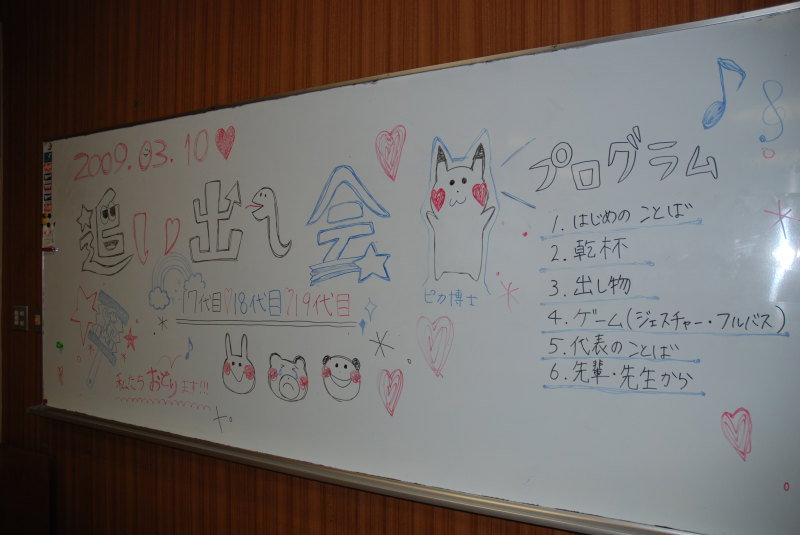 2009.03.10
追い出し会
17代目♡18代目♡19代目
私たちおどります!!!
ピカ博士
プログラム
1. はじめの ことば
2. 乾杯
3. 出し物
4. ゲーム(ジェスチャー・フルバス)
5. 代表のことば
6. 先輩・先生から